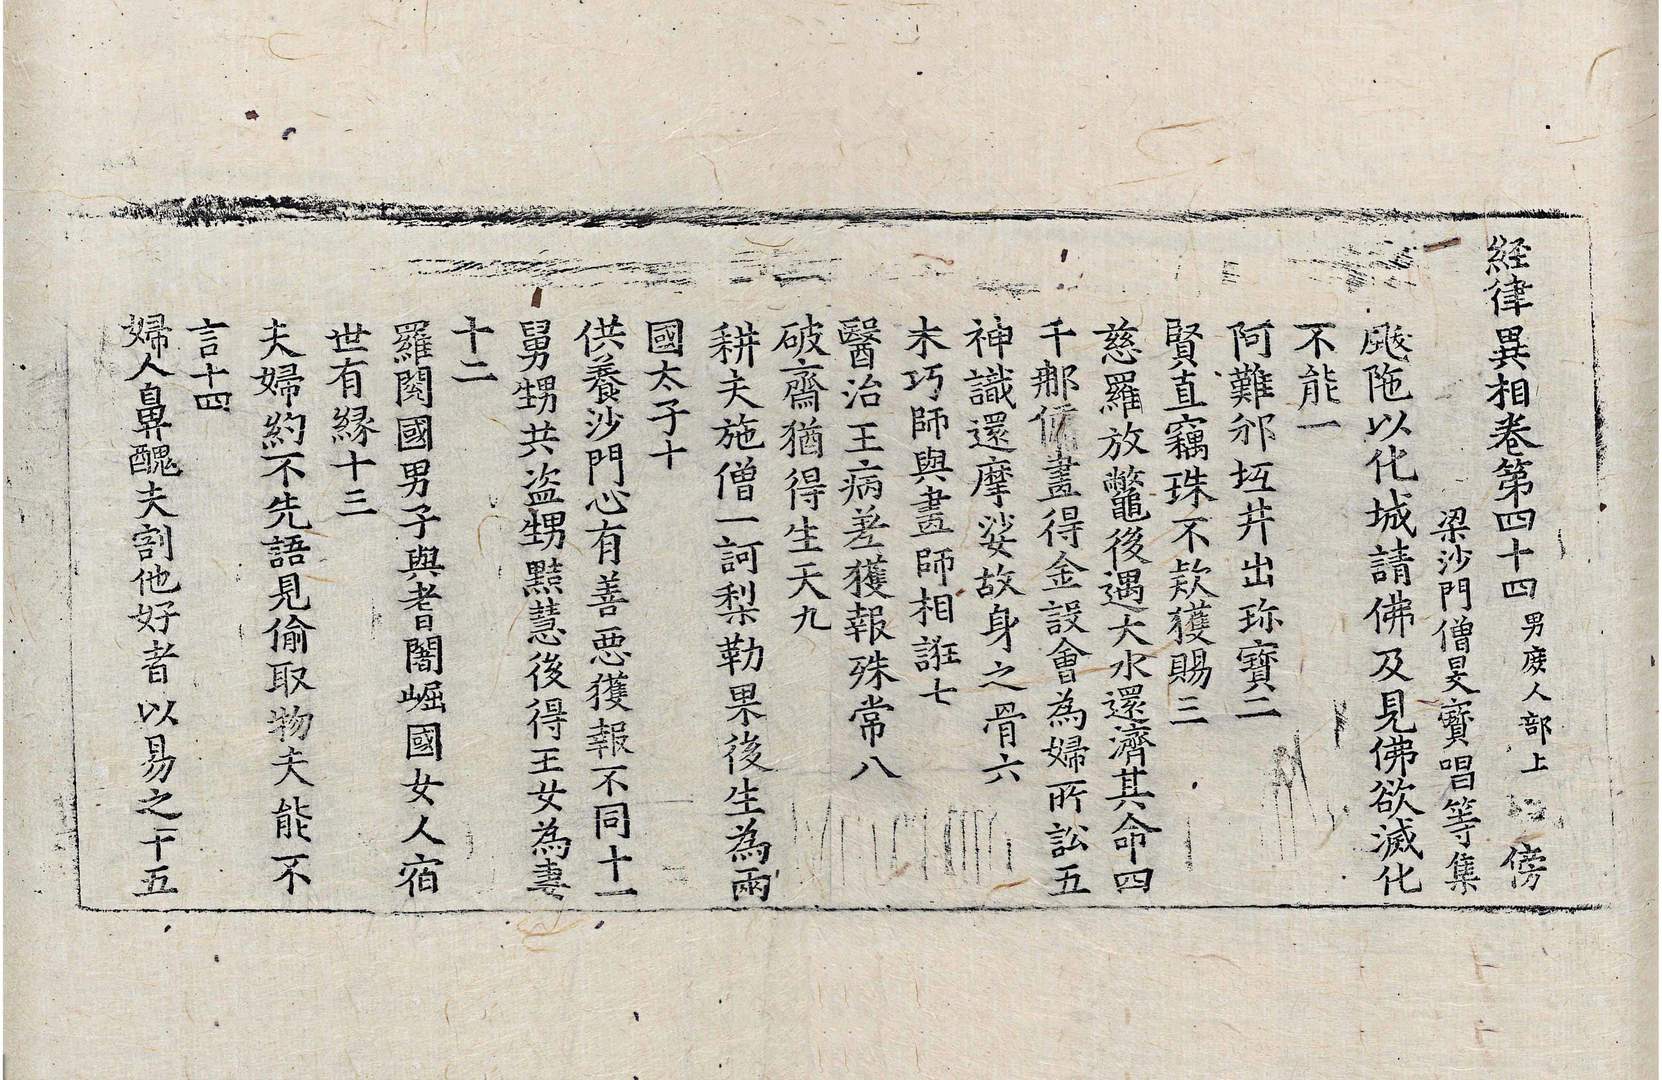 経律異相卷第四十四 男庶人部上 傍
梁沙門僧旻寶唱等集
颰陁以化城請佛及見佛欲滅化
不能一
阿難邠坻井出珎寶二
賢直竊珠不欵獲賜三
慈羅放鼈後遇大水還濟其命四
千那傭畫得金設會為婦所訟五
神識還摩娑故身之骨六
木巧師與畫師相誑七
醫治王病差獲報殊常八
破齋猶得生天九
耕夫施僧一訶梨勒果後生為兩
國太子十
供養沙門心有善惡獲報不同十一
舅甥共盗甥黠慧後得王女為妻
十二
羅閱國男子與耆闍崛國女人宿
世有緣十三
夫婦約不先語見偷取物夫能不
言十四
婦人鼻醜夫割他好者以易之十五